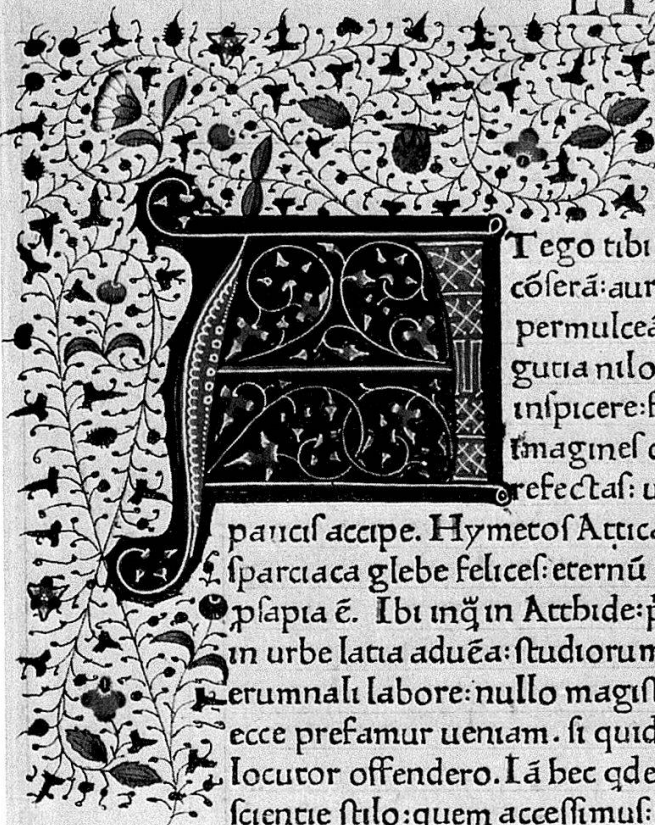 ATego tibi
cõſerã: aur
permulceã
gutia nilo
inſpicere: f
imagineſ c
refectaſ: u
pauciſ accipe. Hymetoſ Attica
ſparciaca glebe feliceſ: eternũ
pſapia ẽ. Ibi inq̃ in Atthide: p
in urbe latia aduẽa: ſtudiorum
erumnali labore: nullo magiſt
ecce prefamur ueniam. ſi quid
locutor offendero. Iã hec qde
ſcientie ſtilo: quem acceſſimuſ: